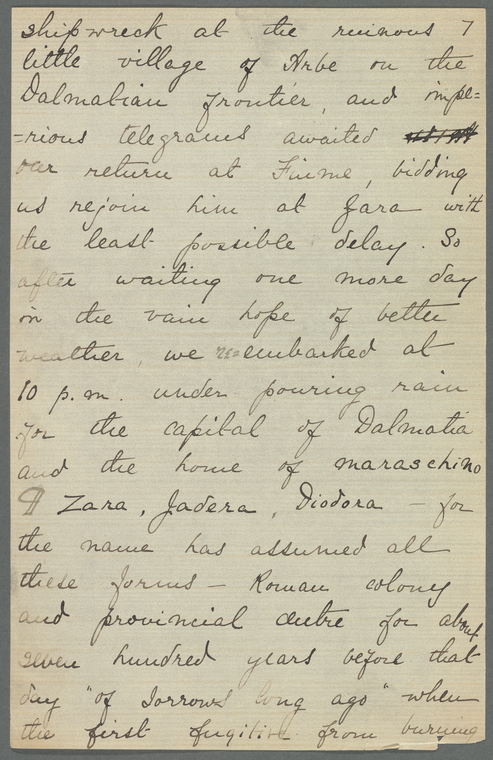 shipwreck at the ruinous 7
little village of Arbe on the
Dalmatian frontier, and impe=
=rious telegrams awaited
our return at Fiume, bidding
us rejoin him at Zara with
the least possible delay. So
after waiting one more day
in the vain hope of better
weather, we re=embarked at
10 p.m. under pouring rain
for the capital of Dalmatia
and the home of maraschino
¶ Zara, Jadera, Diodora — for
the name has assumed all
these forms — Roman colony
and provincial centre for about
seven hundred years before that
day "of sorrows long ago" when
the first fugitive from burning